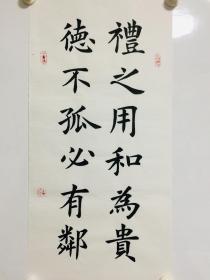 禮之用和為貴
德不孤必有鄰